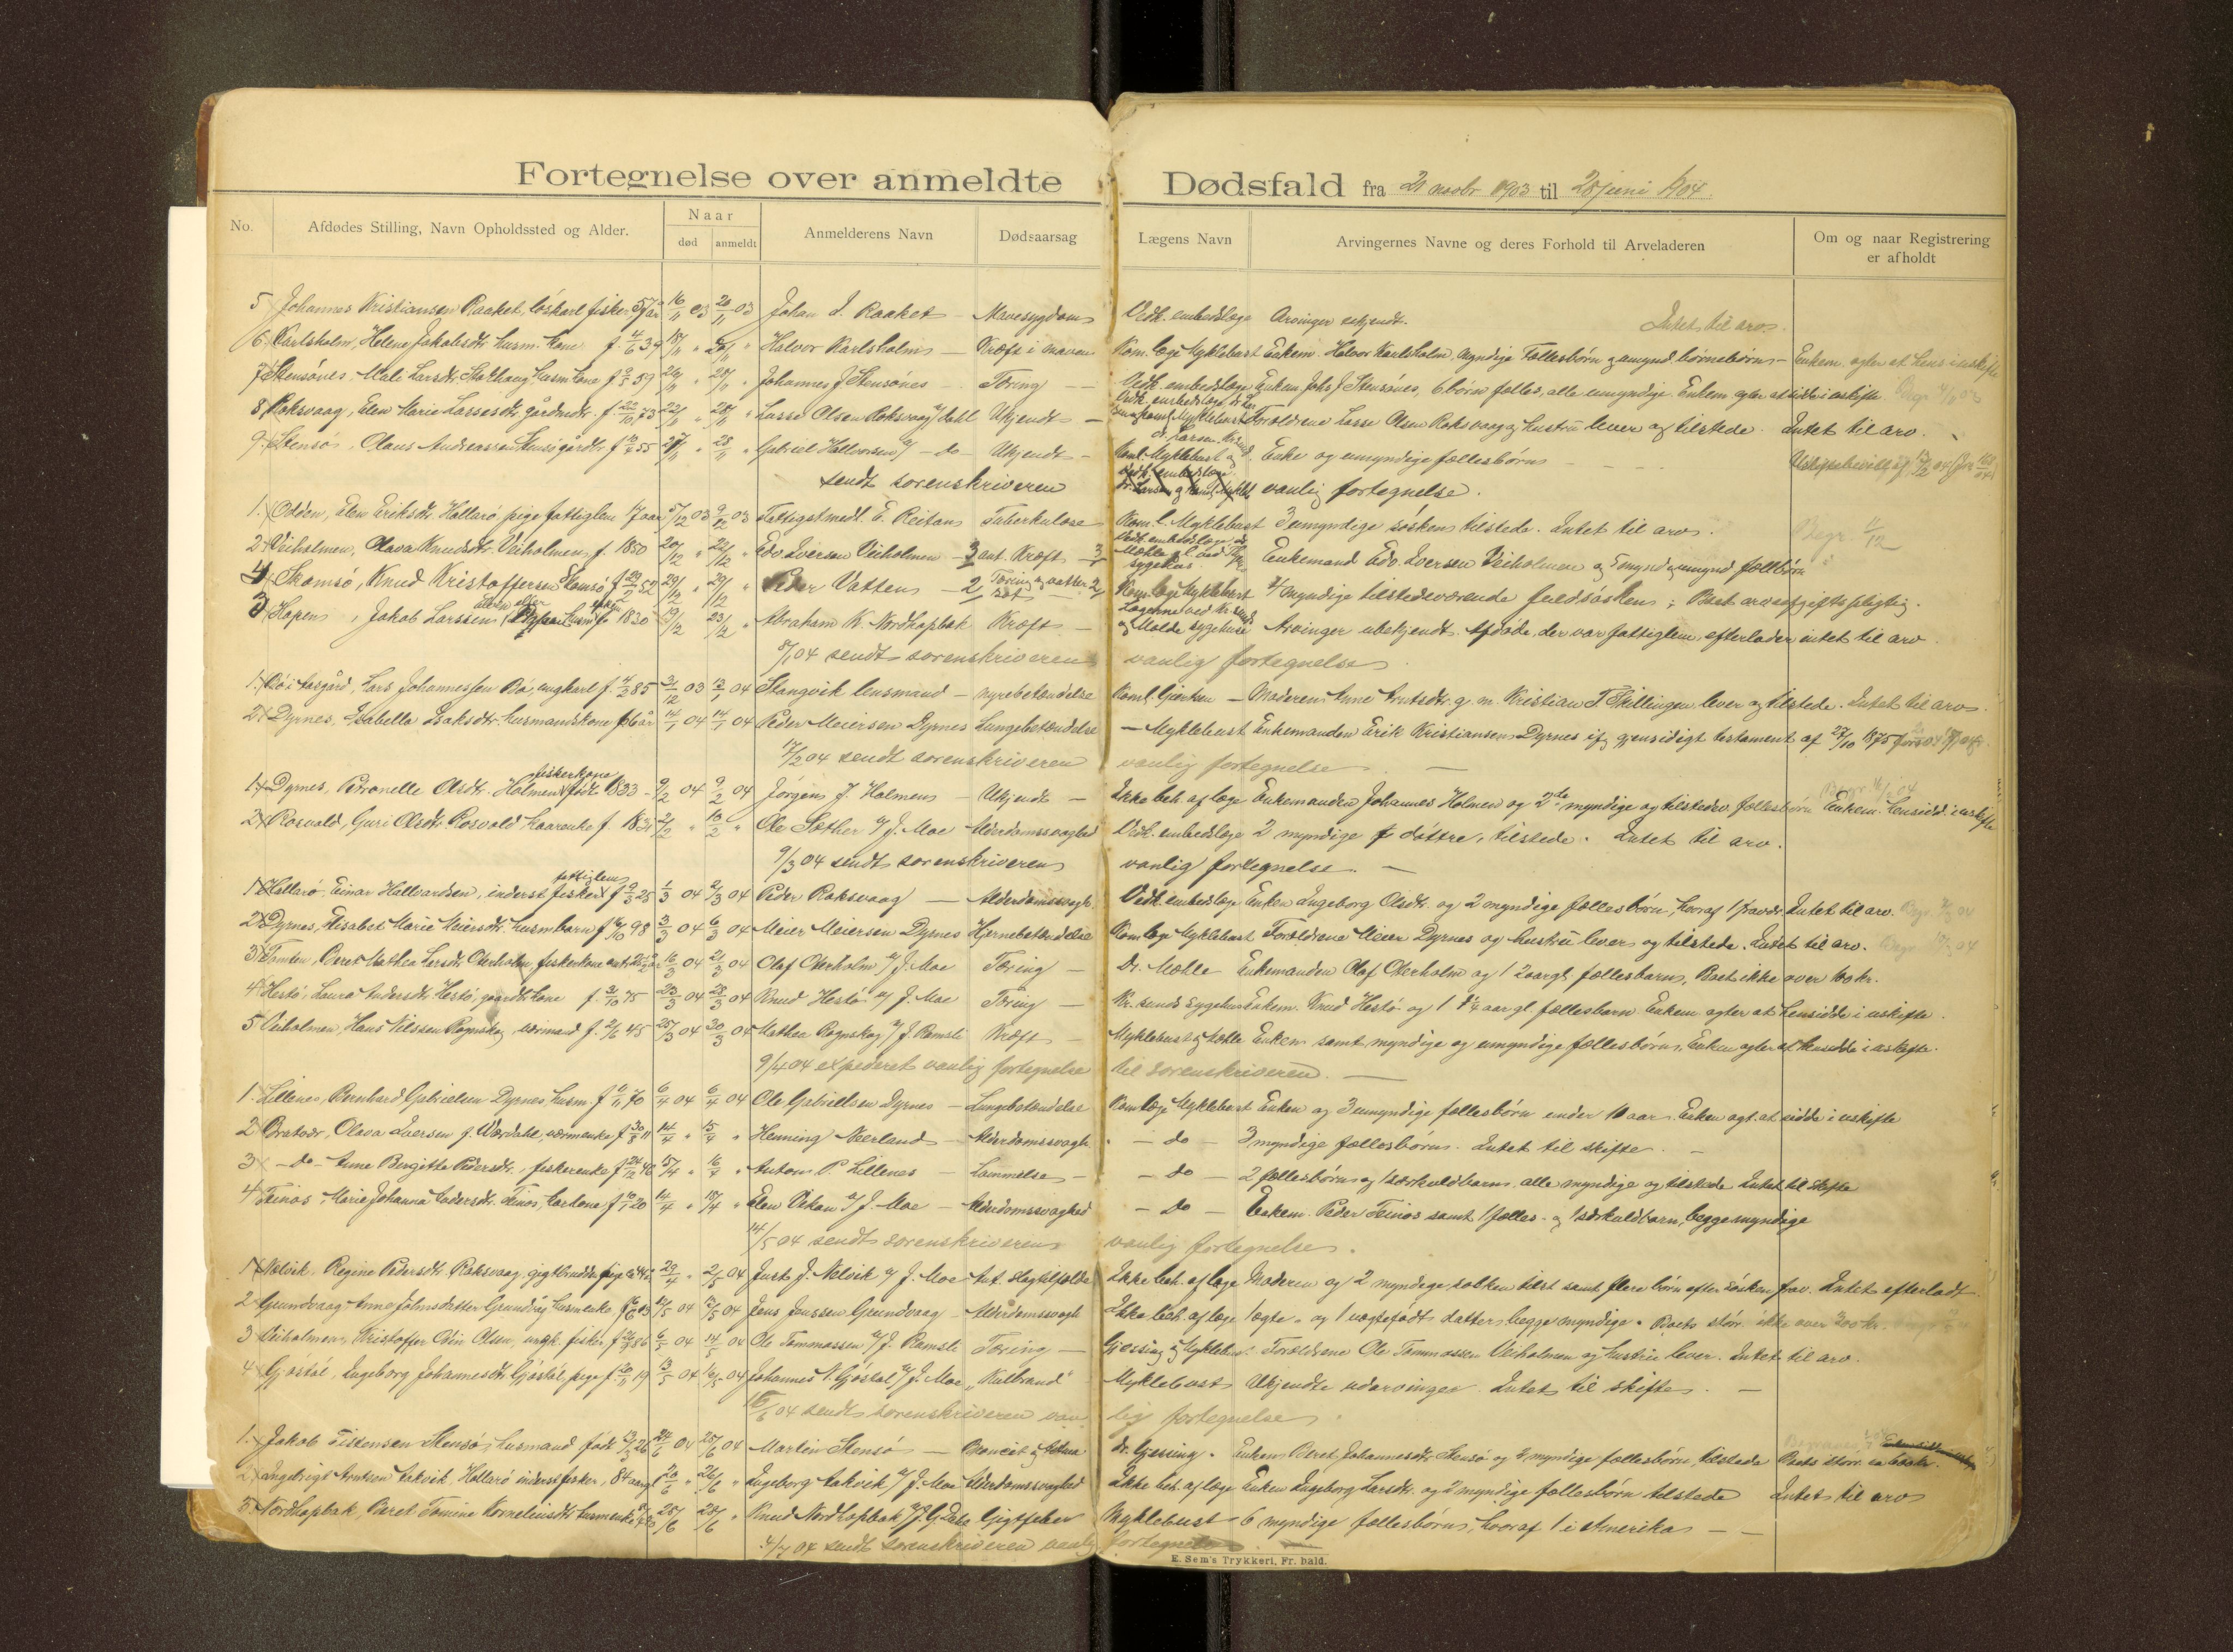 Fortegnelse over anmeldte Dødsfald fra 21 novbr 1903 til 28 juni 1904.
No. Afdødes Stilling, Navn Opholdssted og Alder. Naar død anmeldt Anmelderens Navn Dødsaarsag Lægens Navn Arvingernes Navne og deres Forhold til Arveladeren Om og naar Registrering er afholdt
5 Johannes Kristiansen Raaket, löskarl fisker 57 aar 16/11 03 20/11 03 Johan J. Raaket – Mavesygdom Vedk. embedslæge Arvinger ukjendt. Intet til arv.
6 Karlsholm, Helene Jakobsdtr husm. kone f. 4/6 39 Halvor Karlsholm – Kræft i maven Kom. læge Myklebust Enkem. Halvor Karlsholm, myndige Fællesbörn og umynd. börnebörn – Enkem. agter at hens. i uskifte
7 Stensönes Mali Larsdtr. Stolhaug husm kone Johannes J Stensönes – Tæring – Vedk. embedslæge Enkem Johs J Stensönes, 6 börn fælles, alle umyndige. Enkem agter at sidde i uskifte.
8 Roksvaag, Elen Marie Lassesdtr. gårdmdtr. f. 22/10 73 22/11 " 28/11 " Lasse Olsen Roksvaag Ukjendt – Forældrene Lasse Olsen Roksvaag og hustru lever og tilstede. Intet til arv.
9 Stensö, Olaus Andreassen Stensö gårdbr. Gabriel Hallvorsen – do – Ukjendt – Enke og umyndige fællesbörn
sendt sorenskriveren vanlig fortegnelse.
1. Odden, Elen Eriksdtr. Hallarö pige fattiglem 17 aar 5/12 03 9/12 03 Fattigst medl. E. Reitan Tuberkulose Kom. l. Myklebust 3 umyndige söskend tilstede. Intet til arv. Begr. 11/12
2 Veiholmen, Olava Knudsdtr. Veiholmen f. 1850 20/12 " 22/12 " Edv. Iversen Veiholmen – 3 ant. Kræft – 3 Enkemand Edv. Iversen Veiholmen og myndig umynd fællbörn
4 Skomsö, Knud Kristoffersen Skomsö 29/12 " 29/12 " Peder Vatten – 2 Kom læge Myklebust 4 myndige tilstedeværende fuldsösken; Boet arveafgiftspligtig.
3 Hopen, Jakob Larssen husm f. 1830 19/12 23/12 " Abraham K. Nordhopbak Kræft – Lægerne ved Kr.sund og Molde sygehuse Arvinger ubekjendt. Afdöde, der var fattiglem, efterlader intet til arv.
8/1 04 sendt sorenskriveren vanlig fortegnelse
1. Bö i Aasgård, Lars Johannessen Bö, ungkarl f. 4/3 85 31/12 03 13/1 04 Stangvik lensmand – nyrebetændelse Moderen Anne Knutsdtr. g. m. Kristian T. Skillingen lever og tilstede. Intet til arv.
2 Dyrnes, Isabella Isaksdtr. husmandskone 14/1 04 14/1 04 Peder Meiersen Dyrnes Lungebetændelse – Myklebust Enkemanden Erik Kristiansen Dyrnes ifg gjensidigt testament af 27/10 1875
17/2 04 sendt sorenskriveren vanlig fortegnelse –
1. Dyrnes, Petronelle Olsdtr. Holmen fiskerkone födt 1833 9/2 04 9/2 04 Jörgen J. Holmen – Ukjendt – Ikke beh. af læge Enkemanden Johannes Holmen og 2de myndige og tilstedev. fællesbörn Enkem. hensidd. i uskifte
2 Rosvold, Guri Olsdtr. Rosvold kaarenke f. 1831 2/2 " 10/2 " Ole Sæther v/ J. Moe Alderdomssvaghed Vedk. embedslæge 2 myndige döttre, tilstede. Intet til arv.
9/3 04 sendt sorenskriveren vanlig fortegnelse. –
1 Hallarö, Einar Hallvardsen, inderst fisker fattiglem f. 9/3 25 1/3 04 2/3 04 Peder Roksvaag – Alderdomssvagh. Vedk. embedslæge Enken Ingeborg Olsdtr. og 2 myndige fællesbörn, hvoraf 1 fravær. Intet til arv.
2 Dyrnes, Elisabet Marie Meiersdtr. husmbarn 98 3/3 04 6/3 04 Meier Meiersen Dyrnes Hjernebetændelse Kom læge Myklebust Forældrene Meier Dyrnes og hustru lever og tilstede. Intet til arv.
3 Tömten, Beret Mathea Larsdtr. Oterholm, fiskerkone 16/3 04 21/3 04 Olaf Oterholm v/ J. Moe Tæring – Dr. Mæhle – Enkemanden Olaf Oterholm og 1 2aargl. fællesbarn. Boet ikke over 100 kr.
4 Hestö, Laura Andersdtr. Hestö, gaardbr. kone f. 31/10 75 23/3 04 28/3 04 Knud Hestö v/ J. Moe Tæring – Kr.sunds sygehus Enkem. Knud Hestö og 1 1/4 aar gl. fællesbarn. Enkem agter at hensidde i uskifte.
5 Veiholmen, Hans Nilssen Rognskog, værmand f. 2/6 45 25/3 04 30/3 04 Mathea Rognskog v/ J. Ramsli Kræft – Myklebust og Mæhle Enken samt myndige og umyndige fællesbörn. Enken agter at hensidde i uskifte.
9/4 04 expederet vanlig fortegnelse til sorenskriveren. –
1. Lillenes, Bernhard Gabrielsen Dyrnes, husm. 70 6/4 04 6/4 04 Ole Gabrielsen Dyrnes – Lungebetændelse Kom læge Myklebust Enken og 3 umyndige fællesbörn under 10 aar. Enken agt. at sidde i uskifte
2 Bratvær, Olava Iversen f. Wærdahl, værmenke 14/4 " 15/4 " Henning Neerland – Alderdomssvagh. – do – 3 myndige fællesbörn. Intet til skifte.
3 – do – Anne Bergitte Pedersdtr., fiskerenke 15/4 " 16/4 " Anton P. Lillenes – Lammelse – – do – 2 fællesbörn og 1 særkuldbarn, alle myndige og tilstede. Intet til skifte
4 Teinos, Marie Johanna Andersdtr. Teinos, 14/4 " 18/4 " Elen Vikan v/ J. Moe – Alderdomssvaghed – do – Enkem. Peder Teinos samt 1 fælles- og 1 særkuldbarn, begge myndige
14/5 04 sendt sorenskriveren vanlig fortegnelse.
1 Nelvik, Regine Pedersdtr. Roksvaag, 29/4 " 2/5 04 Just J. Nelvik v/ J. Moe Ant. slagtilfælde Ikke beh. af læge Moderen og 2 myndige söskend tilst. samt flere börn efter sösken frav. Intet efterladt
2 Grundvaag, Anne Johnsdatter Grundvåg husmenke 04 12/5 04 Jens Jenssen Grundvaag – Alderdomssvagh. Ikke beh. af læge 1 ægte- og 1 uægtefödt datter, begge myndige. Boets störr. ikke over 300 kr.
3 Veiholmen, Kristoffer Odin Olsen, ungk. fisker 86 6/5 04 14/5 04 Ole Tommassen v/ J. Ramsli Tæring – Gjessing og Myklebust Forældrene Ole Tommassen Veiholmen og hustru lever. Intet til arv.
4 Gjöstöl, Ingeborg Johannesdtr. Gjöstöl, pige f. 20/11 19 13/5 04 16/5 04 Johannes N. Gjöstöl v/ J. Moe „Kulbrand" Myklebust Ukjendte udarvinger. Intet til skifte. –
04 sendt sorenskriveren vanlig fortegnelse.
1. Jakob Tistensen Stensö, husmand födt 26 24/6 04 25/6 04 Martin Stensö – Dr. Gjessing. Enken Beret Johannesdtr. Stensö og myndige fællesbörn, tilstede
2 Ingebrigt Knutsen Aakvik Hallarö inderst fisker, 84 aar gl. 20/6 " 26/6 " Ingeborg Aakvik v/ J. Moe Alderdomssvaghed Ikke beh. af læge Enken Ingeborg Larsdtr. og 2 myndige fællesbörn tilstede Intet til arv
3 Nordhopbak, Beret Tomine Korneliusdtr. husmenke 25/6 28/6 " Knud Nordhopbak Gigtfeber Myklebust 6 myndige fællesbörn, hvoraf 1 i Amerika – –
4/7 04 sendt sorenskriveren vanlig fortegnelse
E. Sem's Trykkeri, Fr. hald.